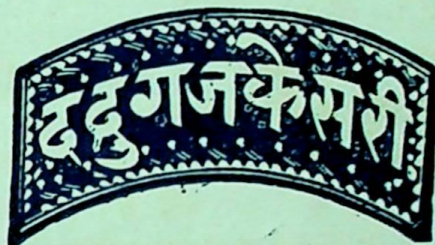 दद्रुगजकेसरी